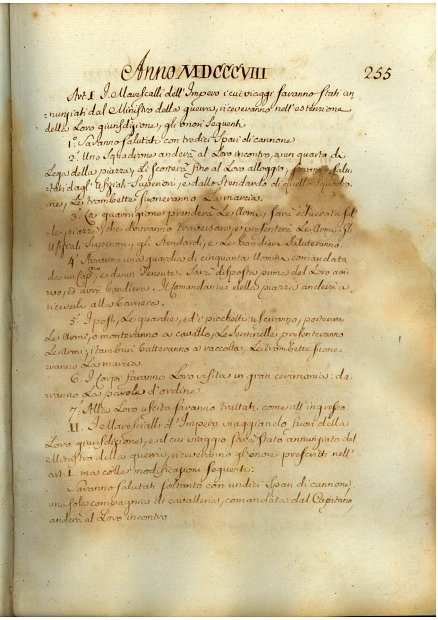 Anno MDCCCVIII
255
Art. I. I Marescialli dell'Impero i cui viaggi saranno stati an-
nunziati dal Ministro della guerra, riceveranno nell'estenzione
della Loro giurisdizione, gli onori Seguenti
1.° Saranno salutati con tredici Spari di cannone
2.° Uno Squadrone anderà al Loro incontro, a un quarto di
Lega della piazza, Li scorterà fino al Loro alloggio, saranno Salu-
tati dagl'Ufiziali Superiori, e dallo Stendardo di quello Squadro-
ne, Le trombette suoneranno La marcia.
3. La guarnigione prenderà Le Armi, sarà schierata
piazze, che dovranno traversare, e presenterà Le Armi. Gl'
Ufiziali Superiori, gli Stendardi, e Le bandiere Saluteranno
4. Avranno una guardia di cinquanta Uomini comandata
da un Cap.no e da un Tenente. Sarà disposta prima del Loro arri-
vo, ed avrà bandiera. Il Comandante della piazza anderà a
riceverli alla Barriera.
5. I posti, Le guardie, ed i picchetti usciranno, porteranno
Le Armi, o monteranno a cavallo, Le Sentinelle presenteranno
Le Armi, i tamburi batteranno a raccolta, Le trombette suone-
ranno La marcia
6. I Corpi faranno Loro visita in gran cerimonia: da-
ranno La parola d'ordine
7. Alla Loro uscita saranno trattati come all'ingresso
II. I Marescialli d'Impero viaggiando fuori della
Loro giurisdizione, e il cui viaggio sarà stato annunziato dal
Ministro della guerra, riceveranno gl'onori prescritti nell'
art. I. ma colle modificazioni seguenti:
Saranno salutati soltanto con undici Spari di cannone,
una sola compagnia di cavalleria, comandata dal Capitano,
anderà al Loro incontro